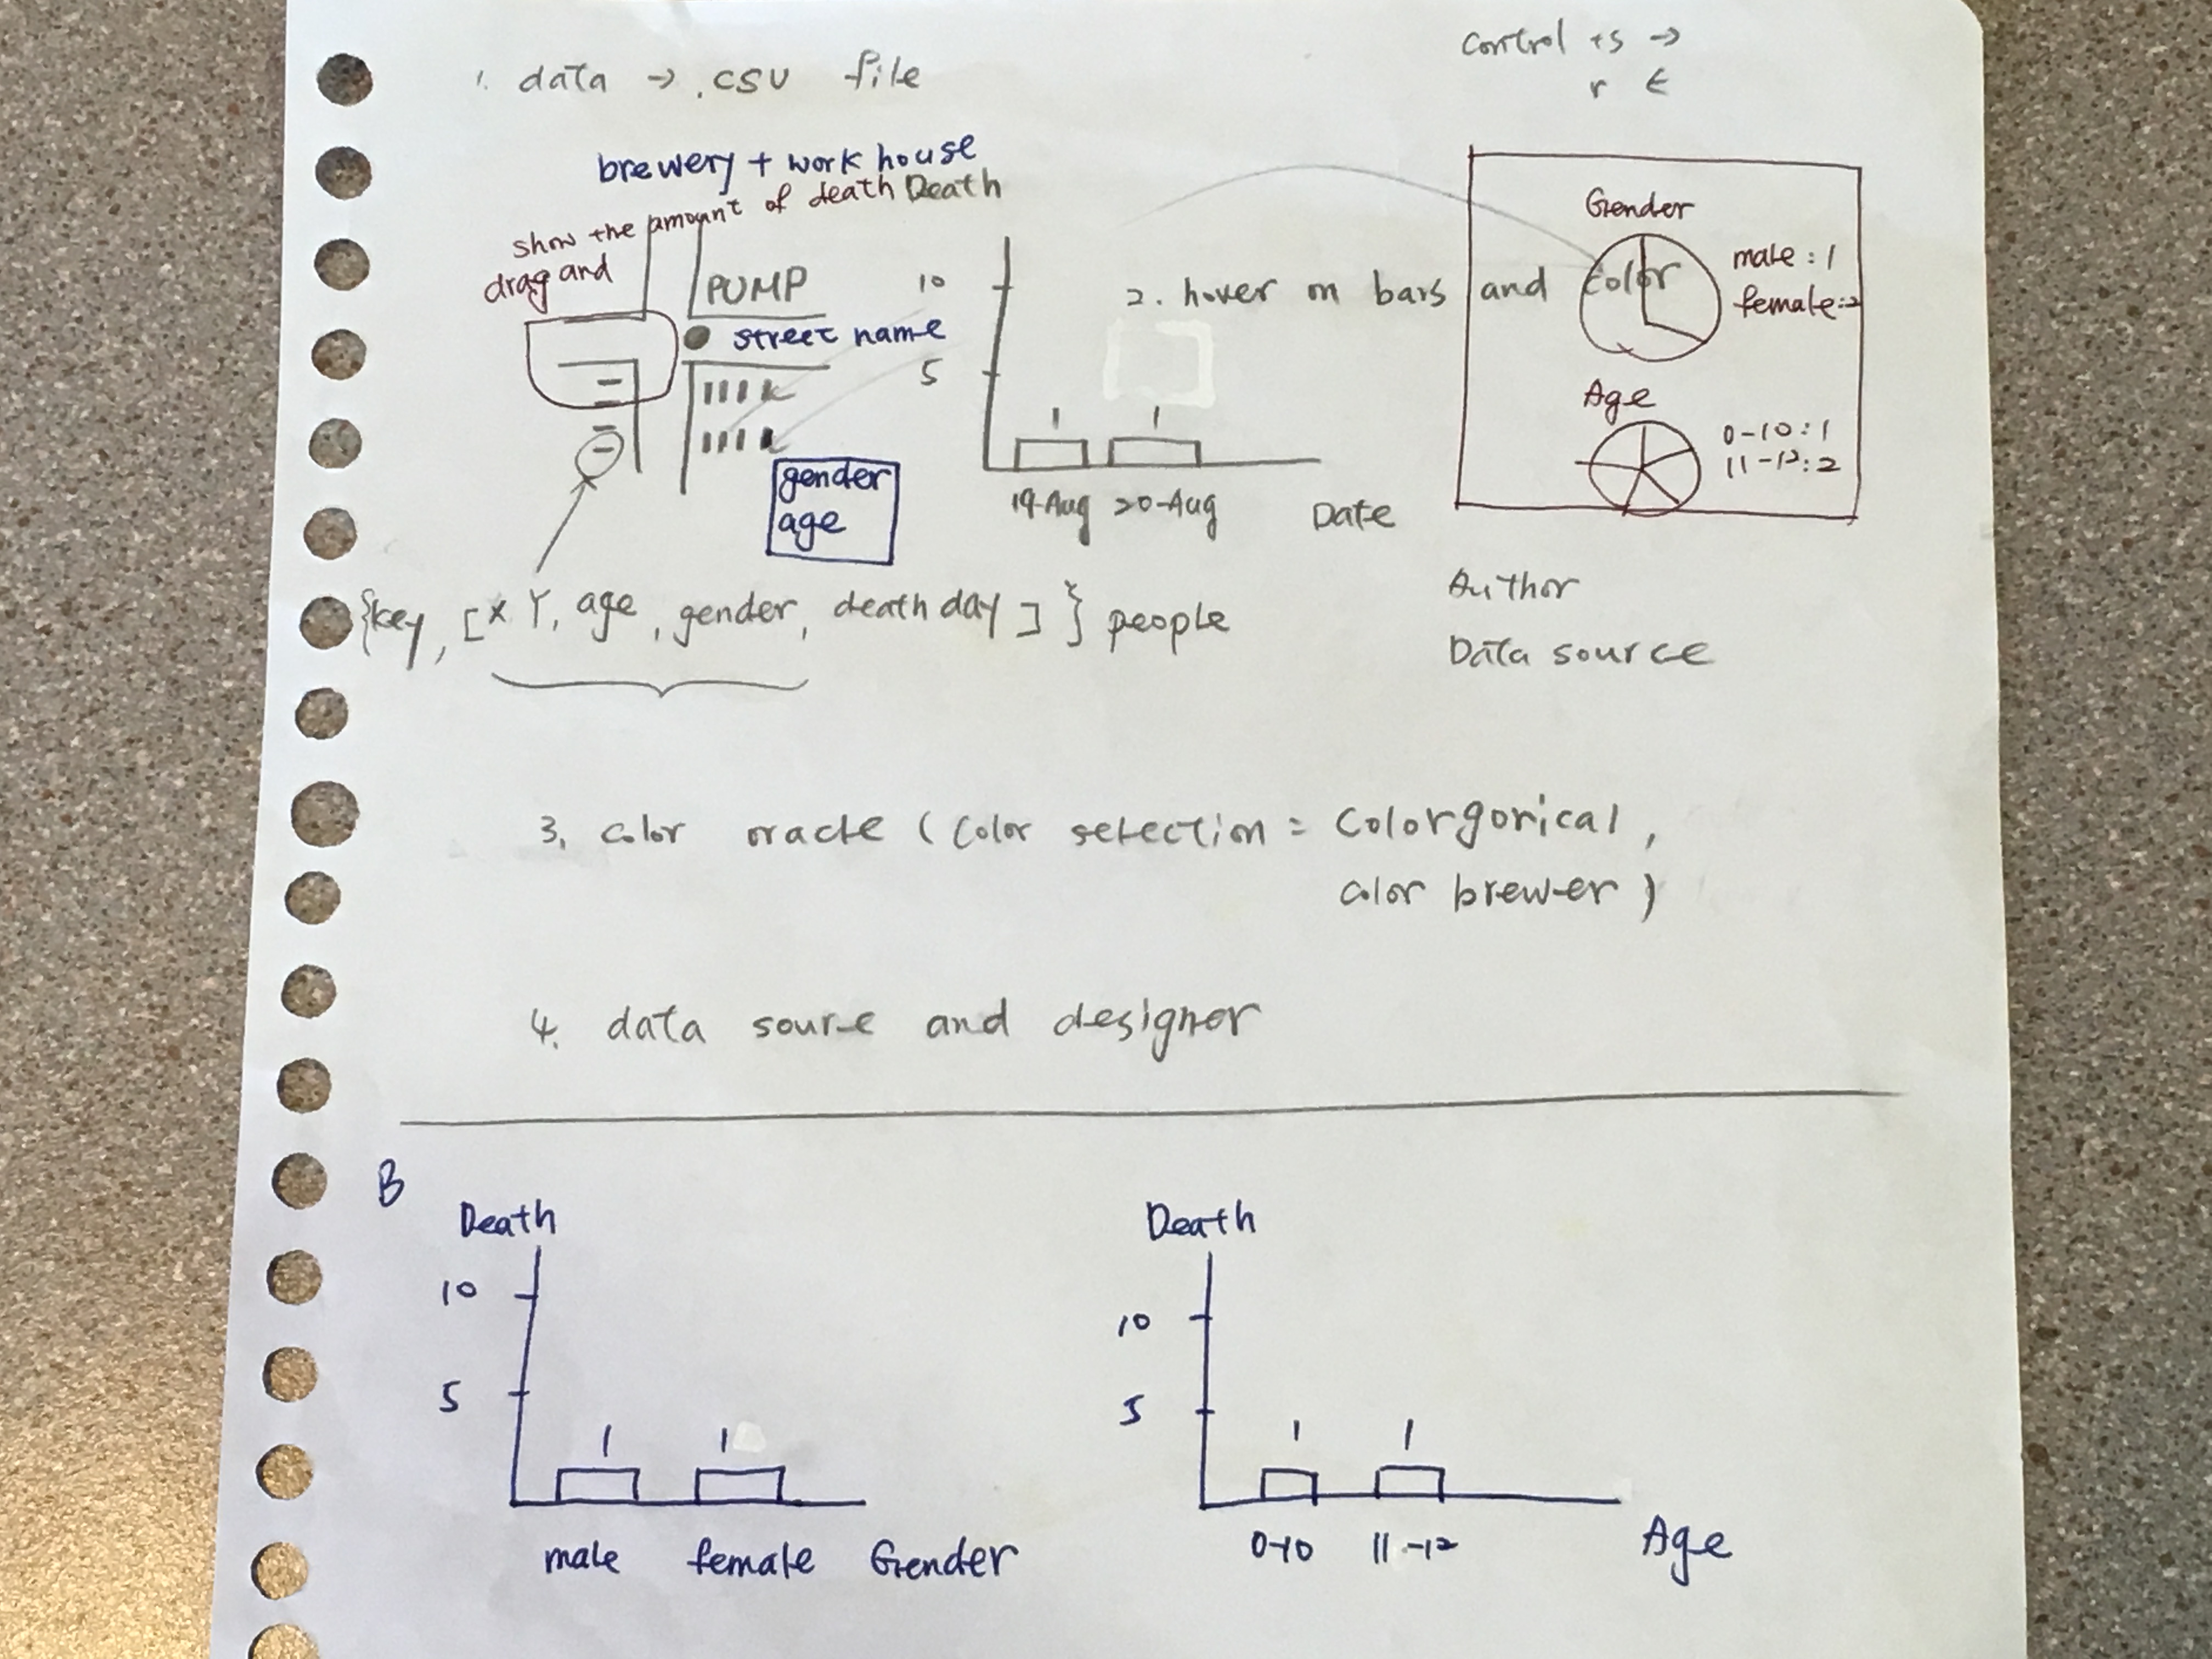 control +s →
r ←
1. data → .csv file
brewery + work house
show the amount of death Death
drag and
PUMP
street name
gender
age
10
5
1 1
19-Aug 20-Aug Date
2. hover on bars and color
Gender
male : 1
female:2
Age
0-10:1
11-12:2
{key, [x Y, age, gender, death day ] } people
Author
Data source
3. color oracle (color selection = Colorgorical,
color brewer)
4. data source and designer
B
Death
10
5
1 1
male female Gender
Death
10
5
1 1
0-10 11-12 Age